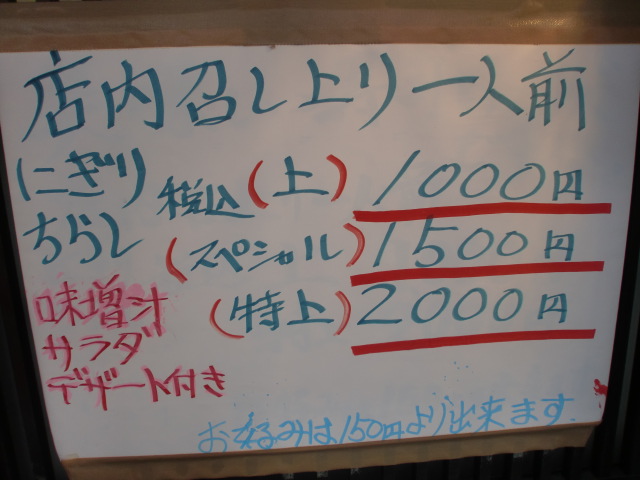 店内召し上り一人前
にぎり 税込 (上) 1000円
ちらし (スペシャル) 1500円
味増汁 (特上) 2000円
サラダ
デザート付き
お好みは150円より出来ます.